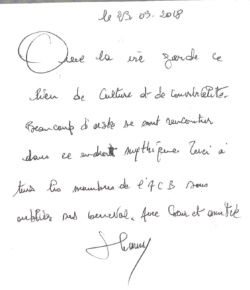 le 23.03.2018
Que la vie garde ce
lieu de Culture et de convivialité.
Beaucoup d'artistes se sont rencontrés
dans ce endroit mythique. Merci à
tous les membres de l'ACB sans
oublier. Avec Cœur et amitié